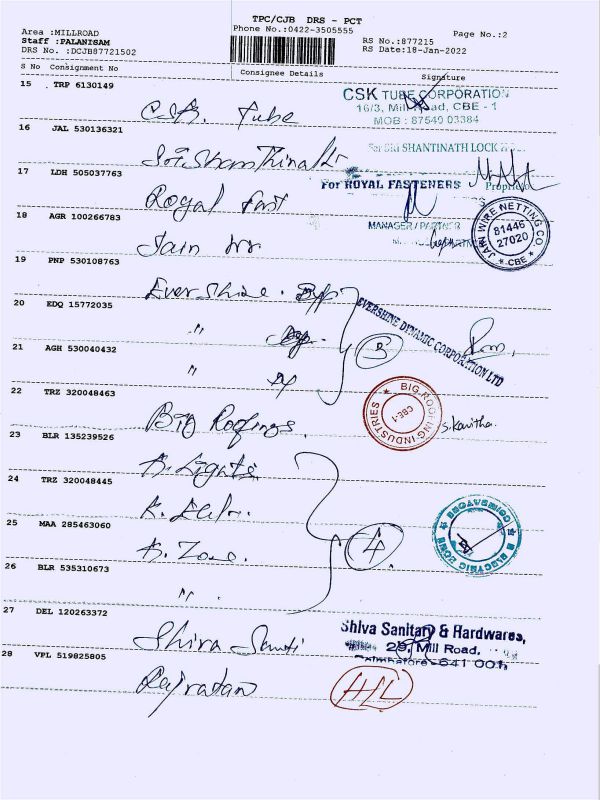 TPC/CJB DRS - PCT
Phone No.:0422-3505555
Area :MILLROAD
Staff :PALANISAM
DRS No. :DCJB87721502
RS No.:877215
RS Date:18-Jan-2022
Page No.:2
S No Consignment No Consignee Details Signature
15 TRP 6130149
Tube
CSK TUBE CORPORATION
16/3, Mill Road, CBE - 1
MOB : 87540 03384
16 JAL 530136321
For SRI SHANTINATH LOCK
Proprietor
17 LDH 505037763
Royal Fast
For ROYAL FASTENERS
MANAGER / PARTNER
18 AGR 100266783
Jain
JAIN WIRE NETTING CO.
81446
27020
* CBE *
19 PNP 530108763
Evershine
20 EDQ 15772035
"
3
EVERSHINE DYNAMIC CORPORATION LTD
21 AGH 530040432
"
22 TRZ 320048463
Big Roofings
BIG ROOFING INDUSTRIES
CBE-1
S. Kavitha
23 BLR 135239526
K. Lights
24 TRZ 320048445
4
25 MAA 285463060
26 BLR 535310673
"
27 DEL 120263372
Shiva
Shiva Sanitary & Hardwares,
25, Mill Road,
Coimbatore-641 001
28 VPL 519825805
Rajratan